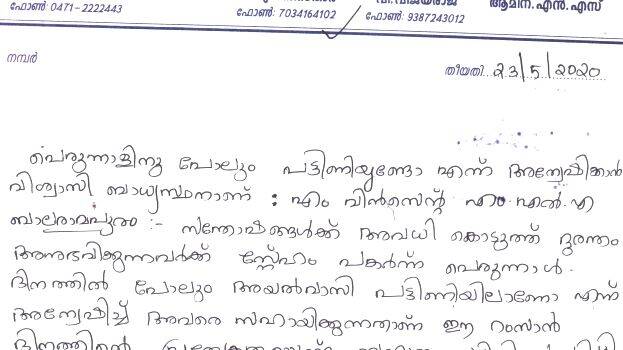 ഫോൺ: 0471-2222443
ഫോൺ: 7034164102
ഫോൺ: 9387243012
ആമിന.എൻ.എസ്
നമ്പർ
തീയതി 23/5/2020
പെരുന്നാളിനു പോലും പട്ടിണിയുണ്ടോ എന്ന് അന്വേഷിക്കാൻ
വിശ്വാസി ബാധ്യസ്ഥനാണ് : എം വിൻസെന്റ് എം.എൽ.എ
ബാലരാമപുരം :- സന്തോഷങ്ങൾക്ക് അവധി കൊടുത്ത് ദുരന്തം
അനുഭവിക്കുന്നവർക്ക് സ്നേഹം പകർന്ന പെരുന്നാൾ.
ദിനത്തിൽ പോലും അയൽവാസി പട്ടിണിയിലാണോ എന്ന്
അന്വേഷിച്ച് അവരെ സഹായിക്കുന്നതാണ് ഈ റംസാൻ
ദിനത്തിന്റെ